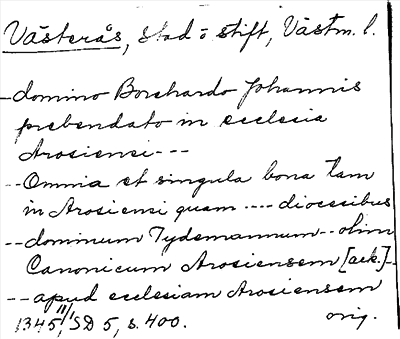 Västerås, stad o stift, Västm. l.
--domino Borchardo Johannis
prebendato in ecclesia
Arosiensi---
--Omnia et singula bona tam
in Arosiensi quam ---- diocesibus
--dominum Tydemannum--olim
Canonicum Arosiensem [ack.]--
--apud ecclesiam Arosiensem
1345 11/1, SD 5, s. 400. orig.